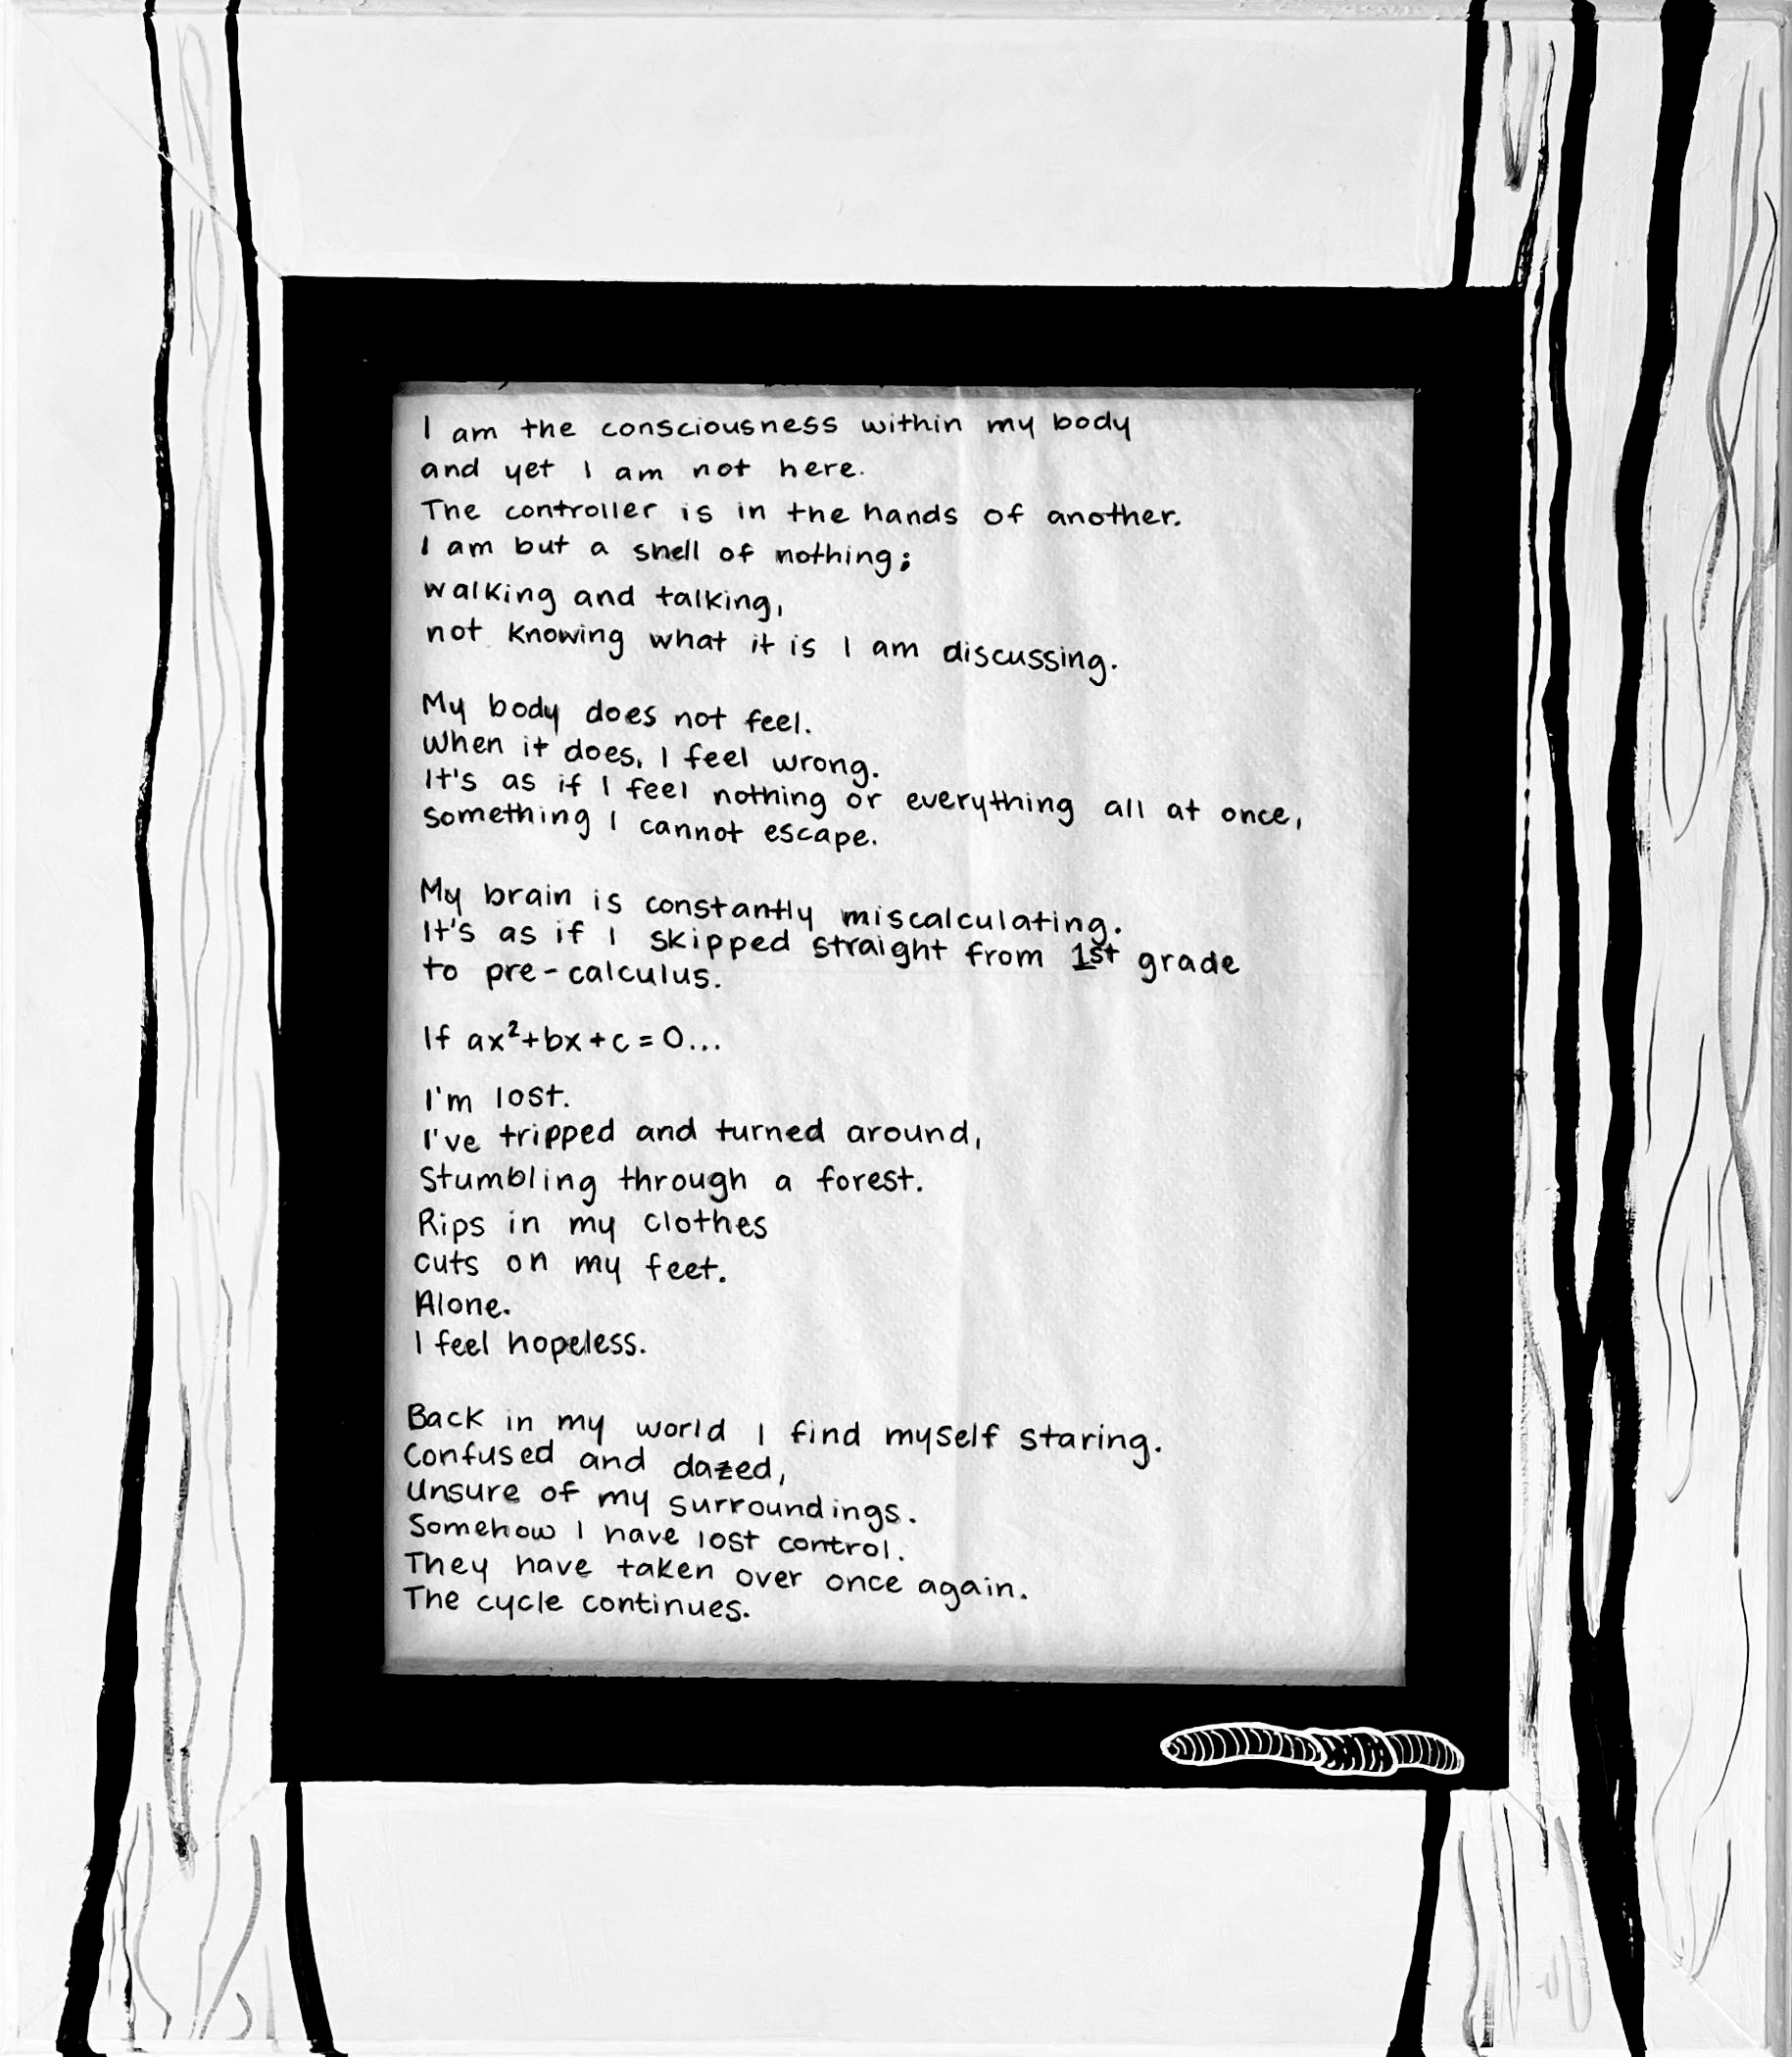 I am the consciousness within my body
and yet I am not here.
The controller is in the hands of another.
I am but a shell of nothing;
walking and talking,
not knowing what it is I am discussing.
My body does not feel.
When it does, I feel wrong.
It's as if I feel nothing or everything all at once,
something I cannot escape.
My brain is constantly miscalculating.
It's as if I skipped straight from 1st grade
to pre-calculus.
If ax²+bx+c=0...
I'm lost.
I've tripped and turned around,
Stumbling through a forest.
Rips in my clothes
cuts on my feet.
Alone.
I feel hopeless.
Back in my world I find myself staring.
Confused and dazed,
Unsure of my surroundings.
Somehow I have lost control.
They have taken over once again.
The cycle continues.